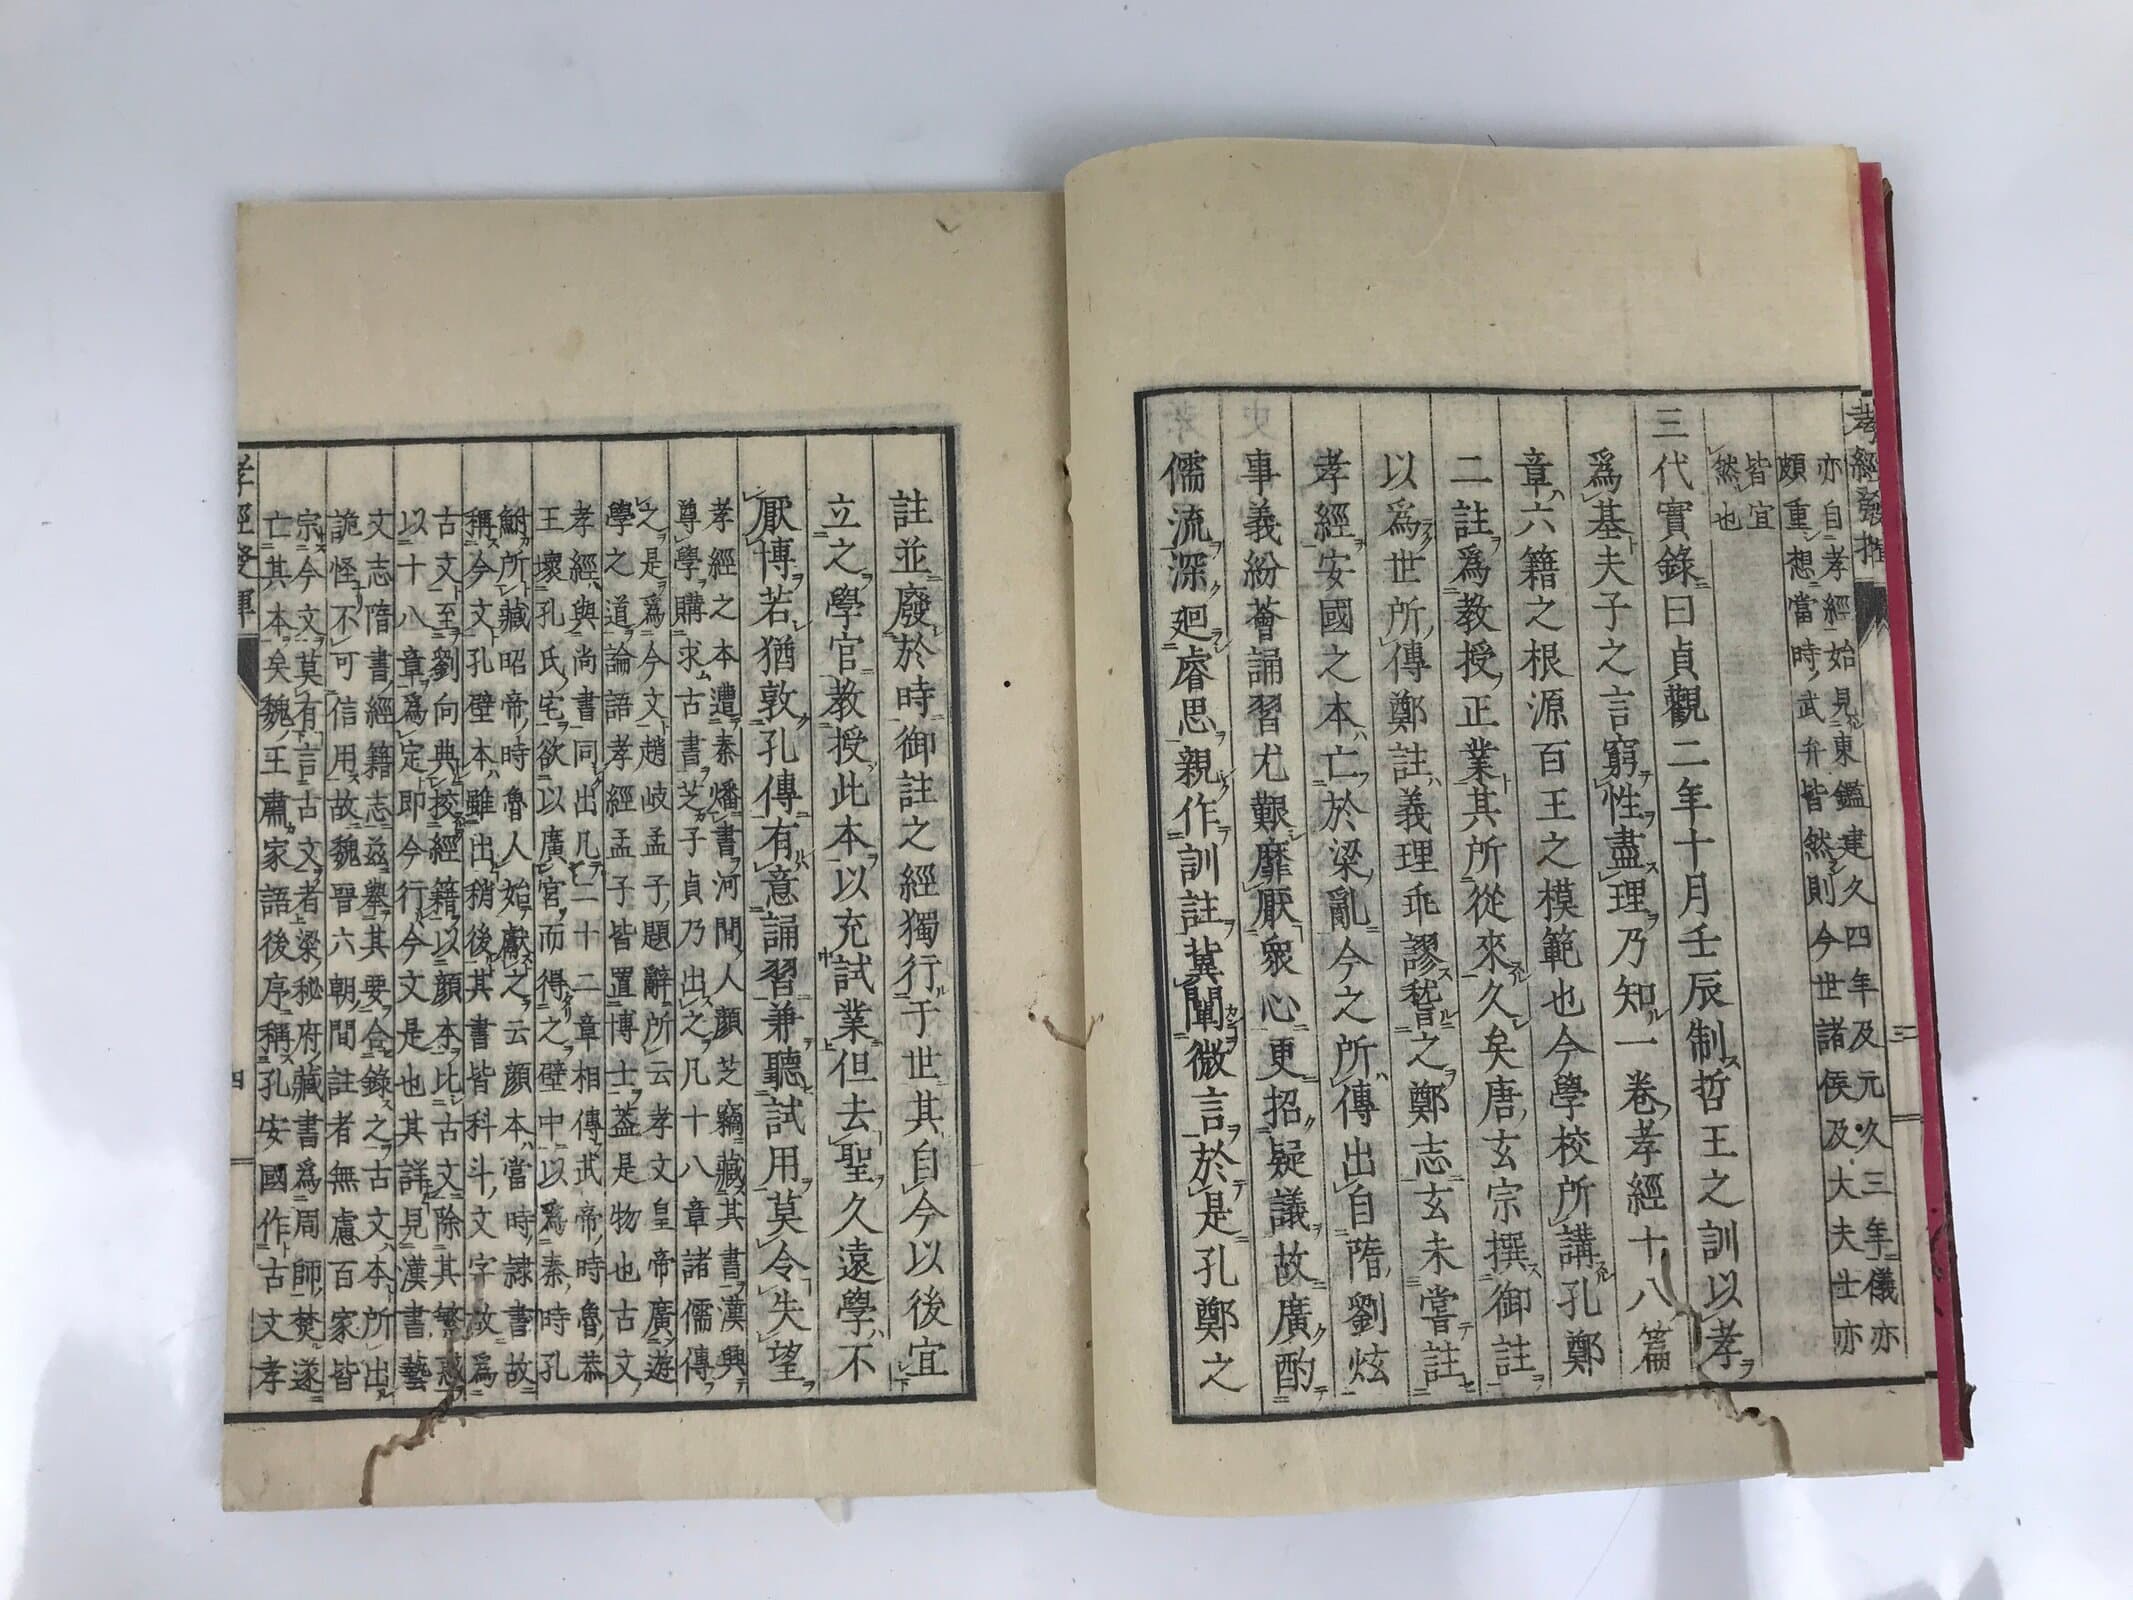 孝經發揮
亦自孝經始見東鑑建久四年及元久三年儀亦
頗重想當時武弁皆然則今世諸侯及大夫士亦
皆宜
然也
三代實錄曰貞觀二年十月壬辰制哲王之訓以孝
爲基夫子之言窮性盡理乃知一卷孝經十八篇
章六籍之根源百王之模範也今學校所講孔鄭
二註爲教授正業其所從來久矣唐玄宗撰御註
以爲世所傳鄭註義理乖謬稽之鄭志玄未嘗註
孝經安國之本亡於梁亂今之所傳出自隋劉炫
事義紛薈誦習尤艱靡厭衆心更招疑議故廣酌
儒流深廻睿思親作訓註冀闡微言於是孔鄭之
二
註並廢於時御註之經獨行于世其自今以後宜
立之學官教授此本以充試業但去聖久遠學不
厭博若猶敦孔傳有意誦習兼聽試用莫令失望
孝經之本遭秦燔書河間人顏芝竊藏其書漢興
尊學購求古書芝子貞乃出之凡十八章諸儒傳
之是爲今文趙岐孟子題辭所云孝文皇帝廣遊
學之道論語孝經孟子皆置博士蓋是物也古文
孝經與尚書同出凡二十二章相傳武帝時魯恭
王壞孔氏宅欲以廣宮而得之壁中以爲秦時孔
鮒所藏昭帝時魯人始獻之云顏本當時隷書故
稱今文孔壁本雖出稍後其書皆科斗文字故爲
古文至劉向典校經籍以顏本比古文除其繁惑
以十八章爲定即今行今文是也其詳見漢書藝
文志隋書經籍志茲舉其要合錄之古文本所出
詭怪不可信用故魏晉六朝間註者無慮百家皆
宗今文莫有言古文者梁秘府藏書爲周師焚遂
亡其本矣魏王肅家語後序稱孔安國作古文孝
孝經發揮
四